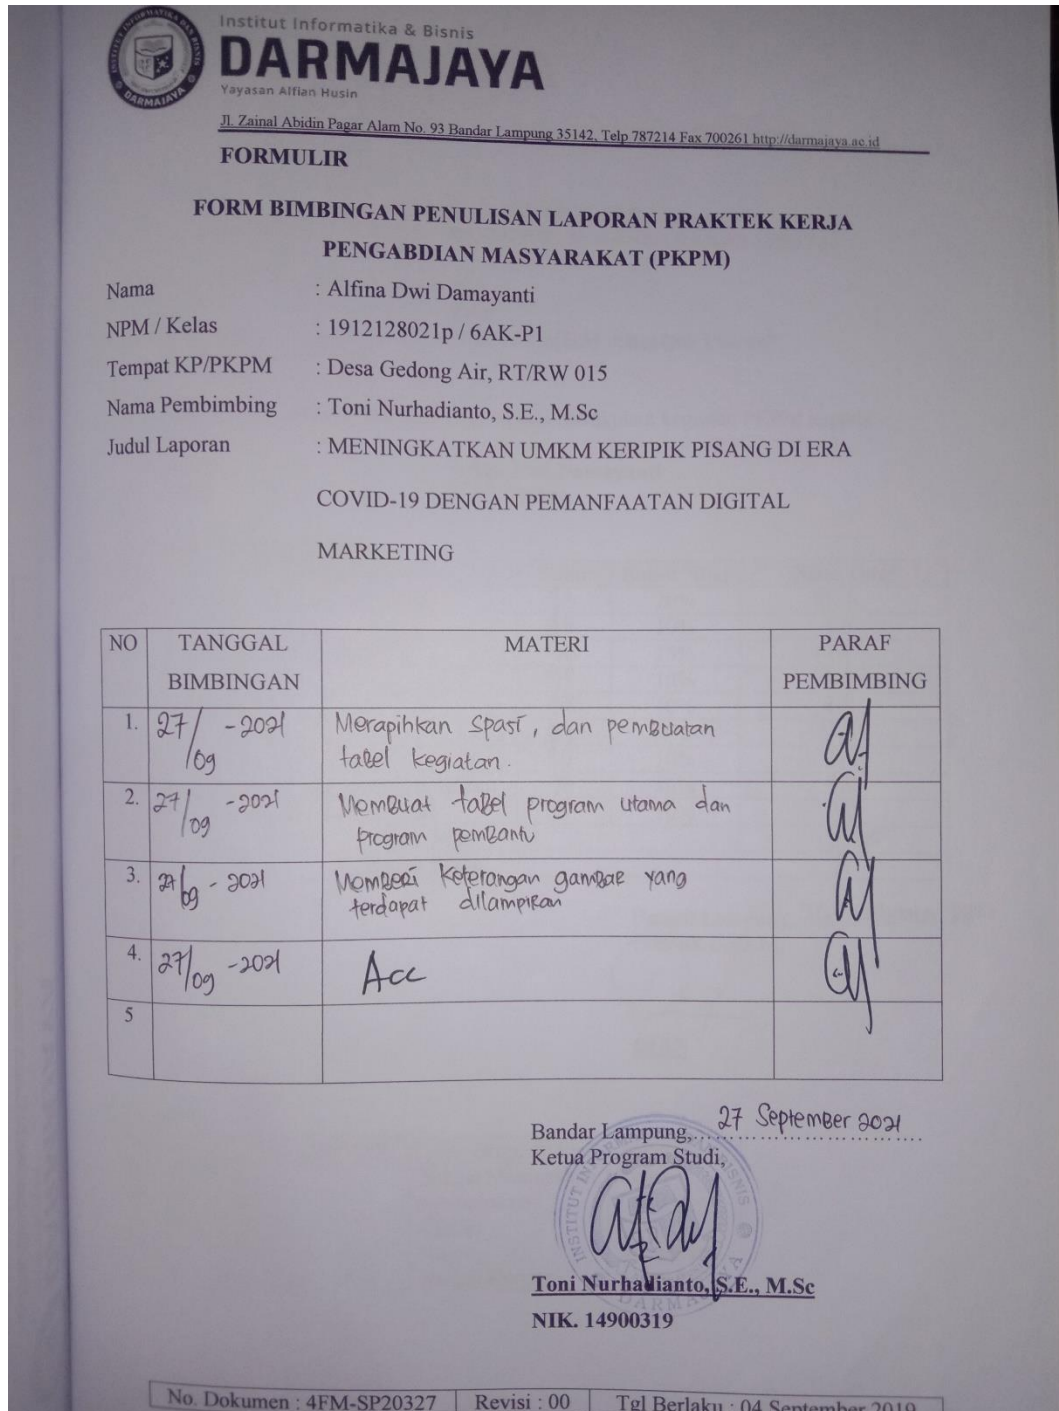 Institut Informatika & Bisnis
DARMAJAYA
Yayasan Alfian Husin
Jl. Zainal Abidin Pagar Alam No. 93 Bandar Lampung 35142, Telp 787214 Fax 700261 http://darmajaya.ac.id
FORMULIR
FORM BIMBINGAN PENULISAN LAPORAN PRAKTEK KERJA
PENGABDIAN MASYARAKAT (PKPM)
Nama : Alfina Dwi Damayanti
NPM / Kelas : 1912128021p / 6AK-P1
Tempat KP/PKPM : Desa Gedong Air, RT/RW 015
Nama Pembimbing : Toni Nurhadianto, S.E., M.Sc
Judul Laporan : MENINGKATKAN UMKM KERIPIK PISANG DI ERA
COVID-19 DENGAN PEMANFAATAN DIGITAL
MARKETING
NO TANGGAL BIMBINGAN MATERI PARAF PEMBIMBING
1. 27/09 -2021 Merapihkan spasi, dan pembuatan
tabel kegiatan.
2. 27/09 -2021 Membuat tabel program utama dan
program pembantu
3. 27/09 - 2021 Memberi keterangan gambar yang
terdapat dilampiran
4. 27/09 -2021 Acc
5
Bandar Lampung, 27 September 2021
Ketua Program Studi,
INSTITUT INFORMATIKA DAN BISNIS
DARMAJAYA
Toni Nurhadianto, S.E., M.Sc
NIK. 14900319
No. Dokumen : 4FM-SP20327 Revisi : 00 Tgl Berlaku : 04 September 2019